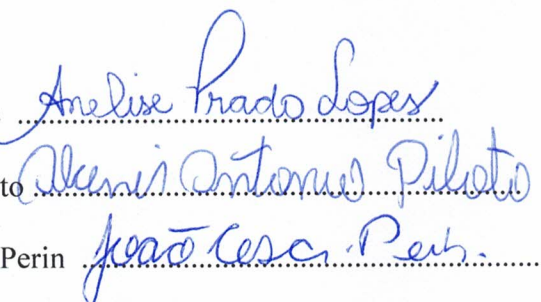 Anelise Prado Lopes
to Antonio Piloto
Perin João Cesar Perin